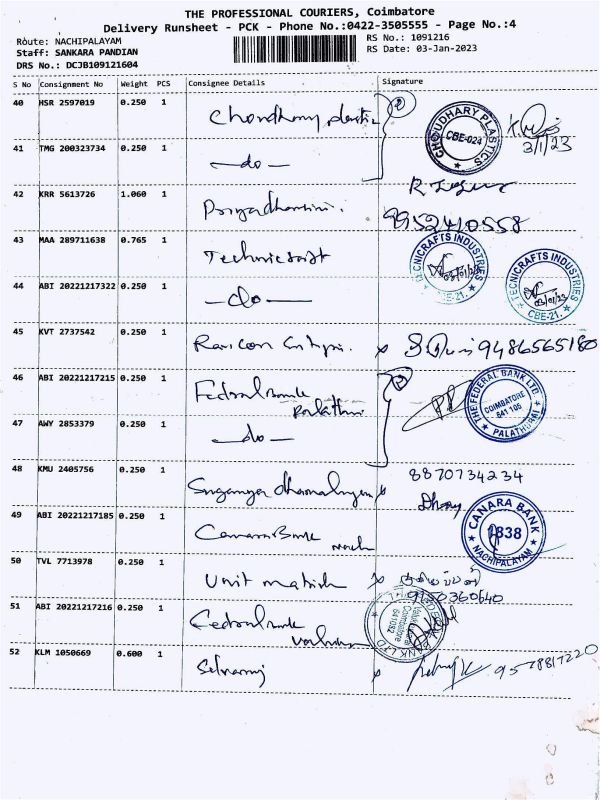 THE PROFESSIONAL COURIERS, Coimbatore
Delivery Runsheet - PCK - Phone No.:0422-3505555 - Page No.:4
Route: NACHIPALAYAM
RS No.: 1091216
Staff: SANKARA PANDIAN
RS Date: 03-Jan-2023
DRS No.: DCJB109121604
S No Consignment No Weight PCS Consignee Details Signature
40 HSR 2597019 0.250 1
2
CHOUDHARY PLASTICS CBE-024
3/1/23
41 TMG 200323734 0.250 1
-do-
42 KRR 5613726 1.060 1
9952410558
43 MAA 289711638 0.765 1
TECNICRAFTS INDUSTRIES CBE-21.
03/01/23
44 ABI 20221217322 0.250 1
-do-
TECNICRAFTS INDUSTRIES CBE-21.
03/01/23
45 KVT 2737542 0.250 1
x 9486565180
46 ABI 20221217215 0.250 1
Federal Bank
THE FEDERAL BANK LTD. COIMBATORE 641 105 PALATHURAI
47 AWY 2853379 0.250 1
-do-
48 KMU 2405756 0.250 1
x 8870734234
49 ABI 20221217185 0.250 1
Canara Bank
CANARA BANK 1838 NACHIPALAYAM
50 TVL 7713978 0.250 1
x
9150360640
51 ABI 20221217216 0.250 1
Federal Bank
Coimbatore
641032
52 KLM 1050669 0.600 1
Selvaraj
x 9578817220